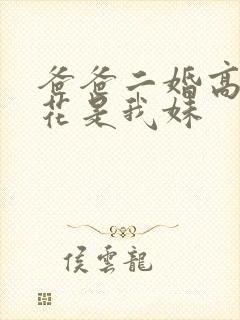 爸爸二婚高
花是我妹
侯雲龍